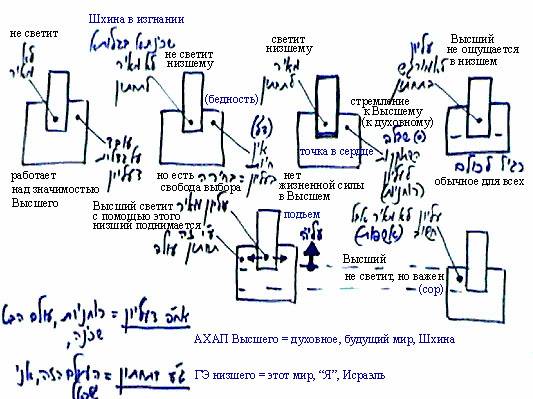 Шхина в изгнании
שכינתא בגלותא
не светит
לא
מאיר
не светит
низшему
לא מאיר
לתחתון
светит
низшему
מאיר
לתחתון
Высший
не ощущается
в низшем
עליון
בתחתון
(бедность)
стремление
к Высшему
(к духовному)
точка в сердце
עובד
דעליון
אין
חיות
בעליון
работает
над значимостью
Высшего
но есть
свобода выбора
= בחירה
нет
жизненной силы
в Высшем
רגיל לכולם
обычное для всех
Высший светит
с помощью этого
низший поднимается
עליון מאיר
ע״י זה
תחתון עולה
подъем
עליה
עליון לא מאיר אבל
חשוב
(אשפה)
Высший
не светит, но важен
(сор)
אח״פ דעליון = רוחניות, עולם הבא
שכינה,
АХАП Высшего = духовное, будущий мир, Шхина
ג״ע דתחתון = העולם הזה, אני
ГЭ низшего = этот мир, “Я”, Исраэль